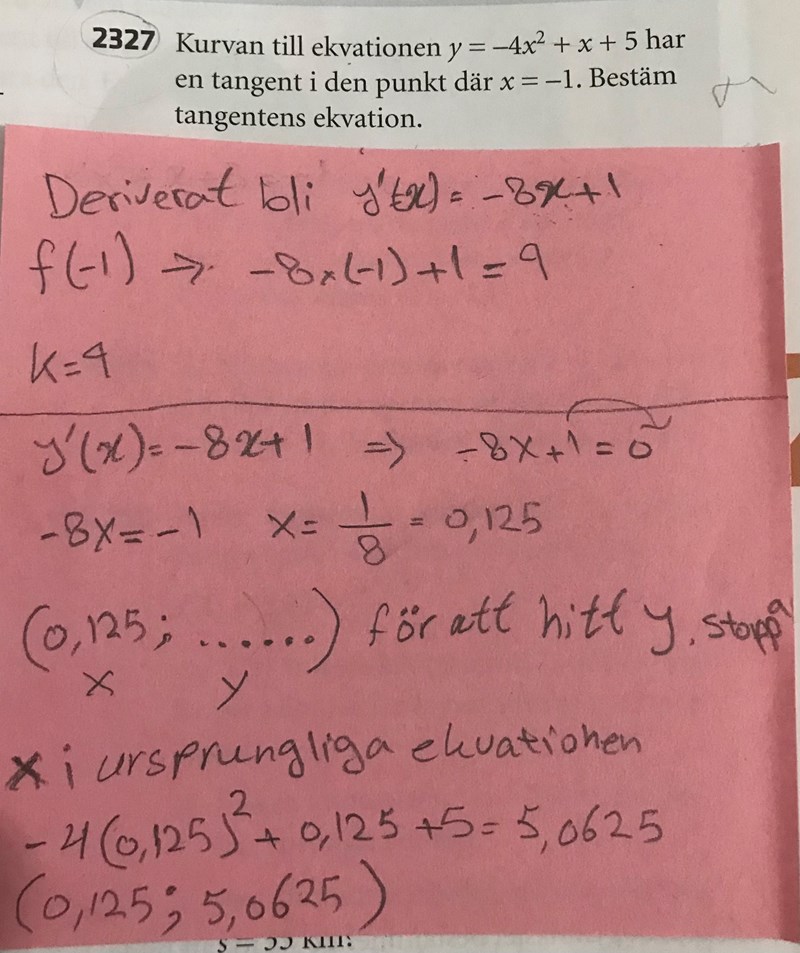 2327 Kurvan till ekvationen y = –4x² + x + 5 har
en tangent i den punkt där x = –1. Bestäm
tangentens ekvation.
Deriverat bli y'(x) = -8x+1
f(-1) → -8×(-1)+1 = 9
k=9
y'(x)= -8x+1 ⇒ -8x+1 = 0
-8x=-1 x= 1/8 = 0,125
(0,125; ......) för att hitt y, stoppa
x y
x i ursprungliga ekvationen
-4(0,125)²+ 0,125 +5= 5,0625
(0,125; 5,0625)